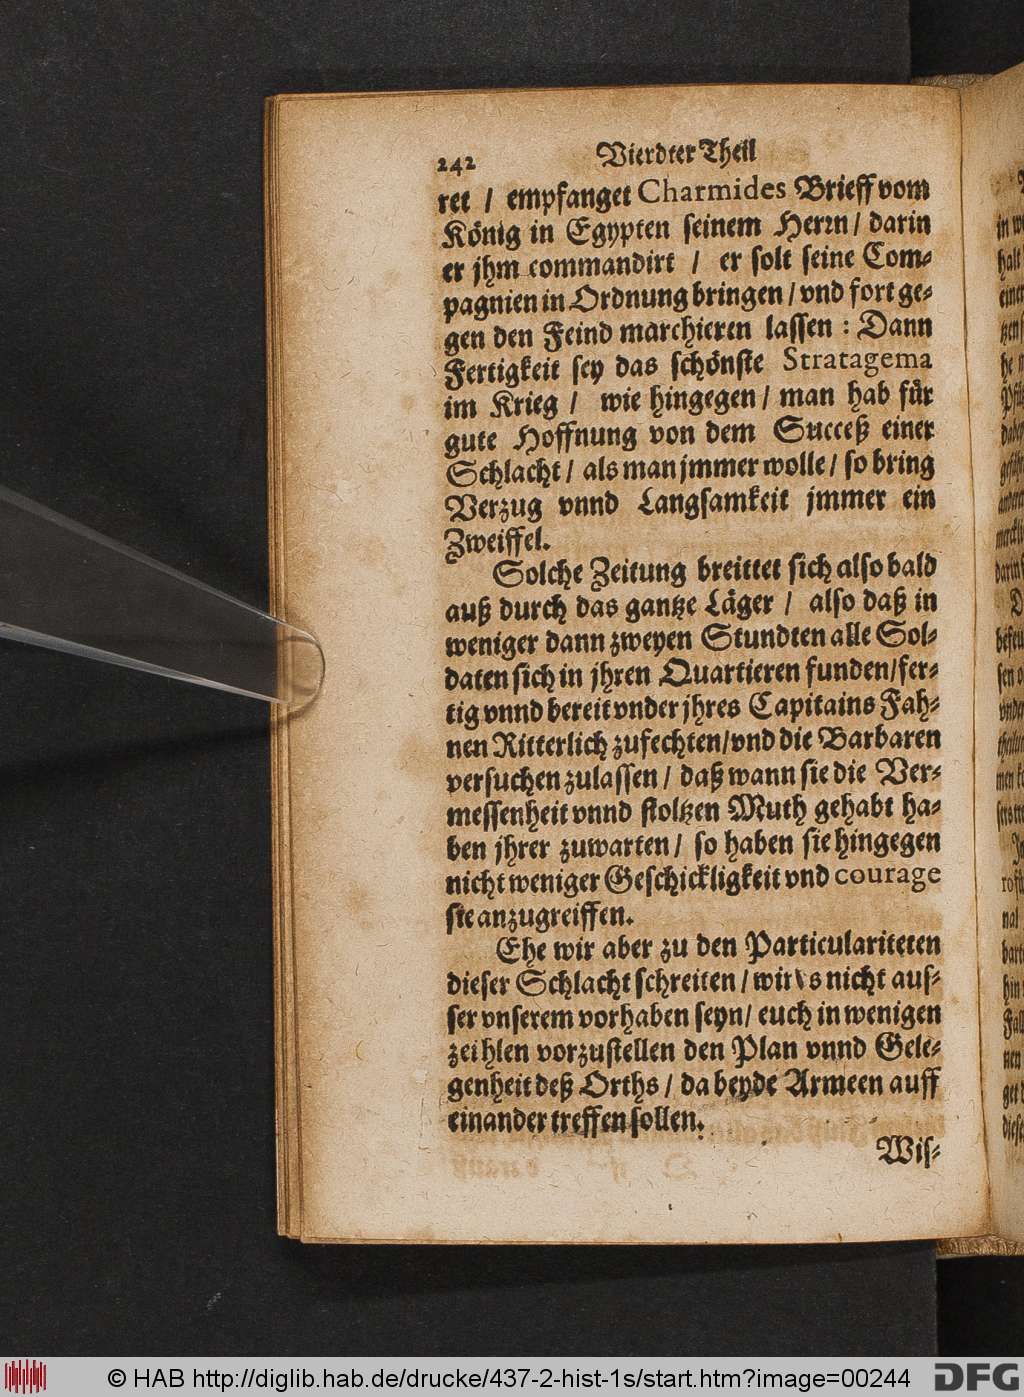 242 Vierdter Theil
ret / empfanget Charmides Brieff vom
König in Egypten seinem Herrn / darin
er jhm commandirt / er solt seine Com-
pagnien in Ordnung bringen / vnd fort ge-
gen den Feind marchieren lassen : Dann
Fertigkeit sey das schönste Stratagema
im Krieg / wie hingegen / man hab für
gute Hoffnung von dem Succeß einer
Schlacht / als man jmmer wolle / so bring
Verzug vnnd Langsamkeit jmmer ein
Zweiffel.
Solche Zeitung breittet sich also bald
auß durch das gantze Läger / also daß in
weniger dann zweyen Stundten alle Sol-
daten sich in jhren Quartieren funden / fer-
tig vnnd bereit vnder jhres Capitains Fah-
nen Ritterlich zufechten / vnd die Barbaren
versuchen zulassen / daß wann sie die Ver-
messenheit vnnd stoltzen Muth gehabt ha-
ben jhrer zuwarten / so haben sie hingegen
nicht weniger Geschickligkeit vnd courage
sie anzugreiffen.
Ehe wir aber zu den Particulariteten
dieser Schlacht schreiten / nicht aus-
ser vnserem vorhaben seyn / euch in wenigen
zeihlen vorzustellen den Plan vnnd Gele-
genheit deß Orths / da beyde Armeen auff
einander treffen sollen.
Wis-
© HAB http://diglib.hab.de/drucke/437-2-hist-1s/start.htm?image=00244
DFG